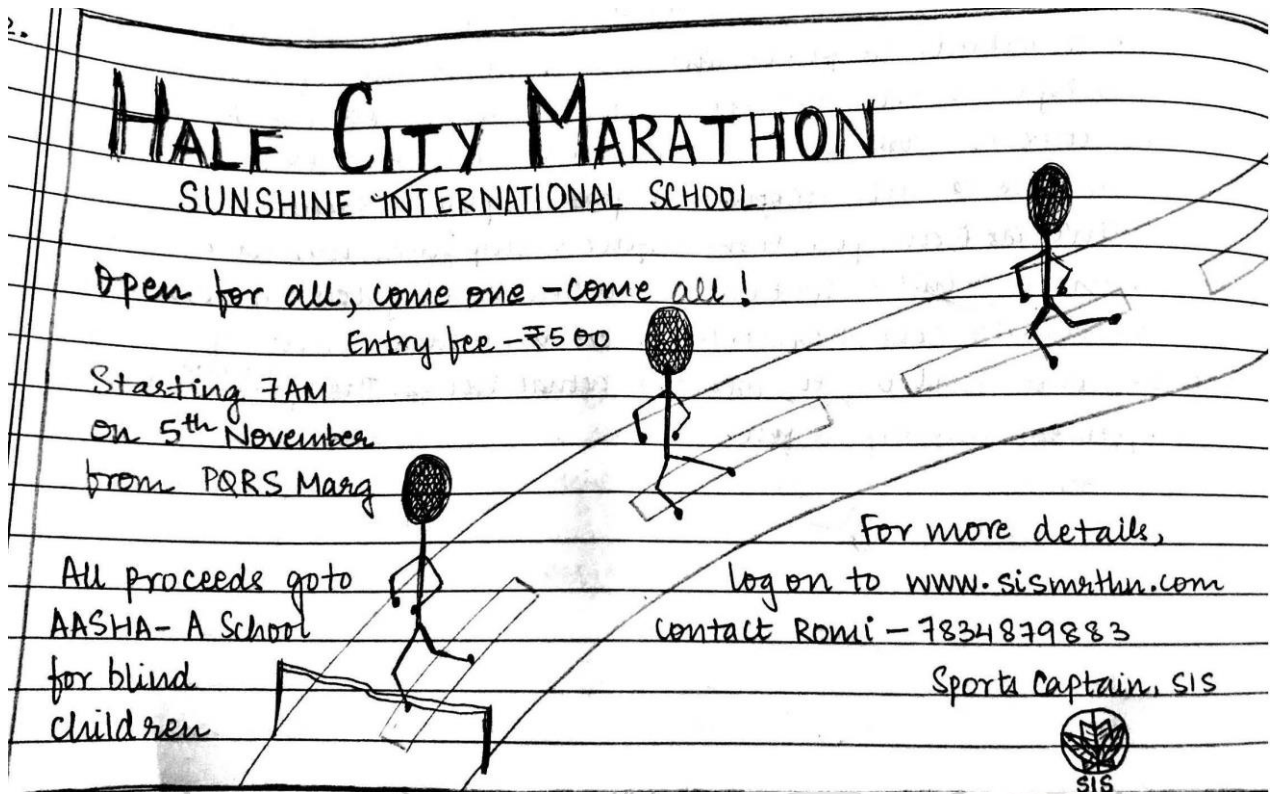 2.
HALF CITY MARATHON
SUNSHINE INTERNATIONAL SCHOOL
Open for all, come one - come all!
Entry fee - ₹500
Starting 7AM
on 5th November
from PQRS Marg
All proceeds go to
AASHA - A School
for blind
children
For more details,
log on to www.sismrthn.com
contact Romi - 7834879883
Sports Captain, SIS
SIS